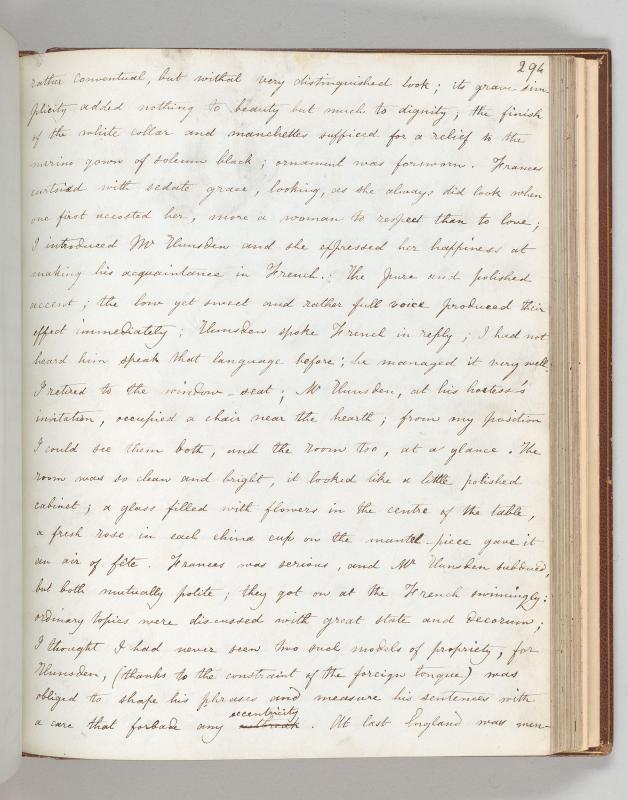 294
rather conventual, but withal very distinguished look; its grave sim-
plicity added nothing to beauty but much to dignity; the finish
of the white collar and manchettes sufficed for a relief to the
merino gown of solemn black; ornament was forsworn. Frances
curtsied with sedate grace, looking, as she always did look when
one first accosted her, more a woman to respect than to love;
I introduced Mr Hunsden and she expressed her happiness at
making his acquaintance in French. The pure and polished
accent; the low yet sweet and rather full voice produced their
effect immediately; Hunsden spoke French in reply; I had not
heard him speak that language before; he managed it very well.
I retired to the window-seat; Mr Hunsden, at his hostess's
invitation, occupied a chair near the hearth; from my position
I could see them both, and the room too, at a glance. The
room was so clean and bright, it looked like a little polished
cabinet; a glass filled with flowers in the centre of the table,
a fresh rose in each china cup on the mantel-piece gave it
an air of fête. Frances was serious, and Mr Hunsden subdued,
but both mutually polite; they got on at the French swimmingly:
ordinary topics were discussed with great state and decorum;
I thought I had never seen two such models of propriety, for
Hunsden, (thanks to the constraint of the foreign tongue) was
obliged to shape his phrases and measure his sentences with
a care that forbade any eccentricity. At last England was men-